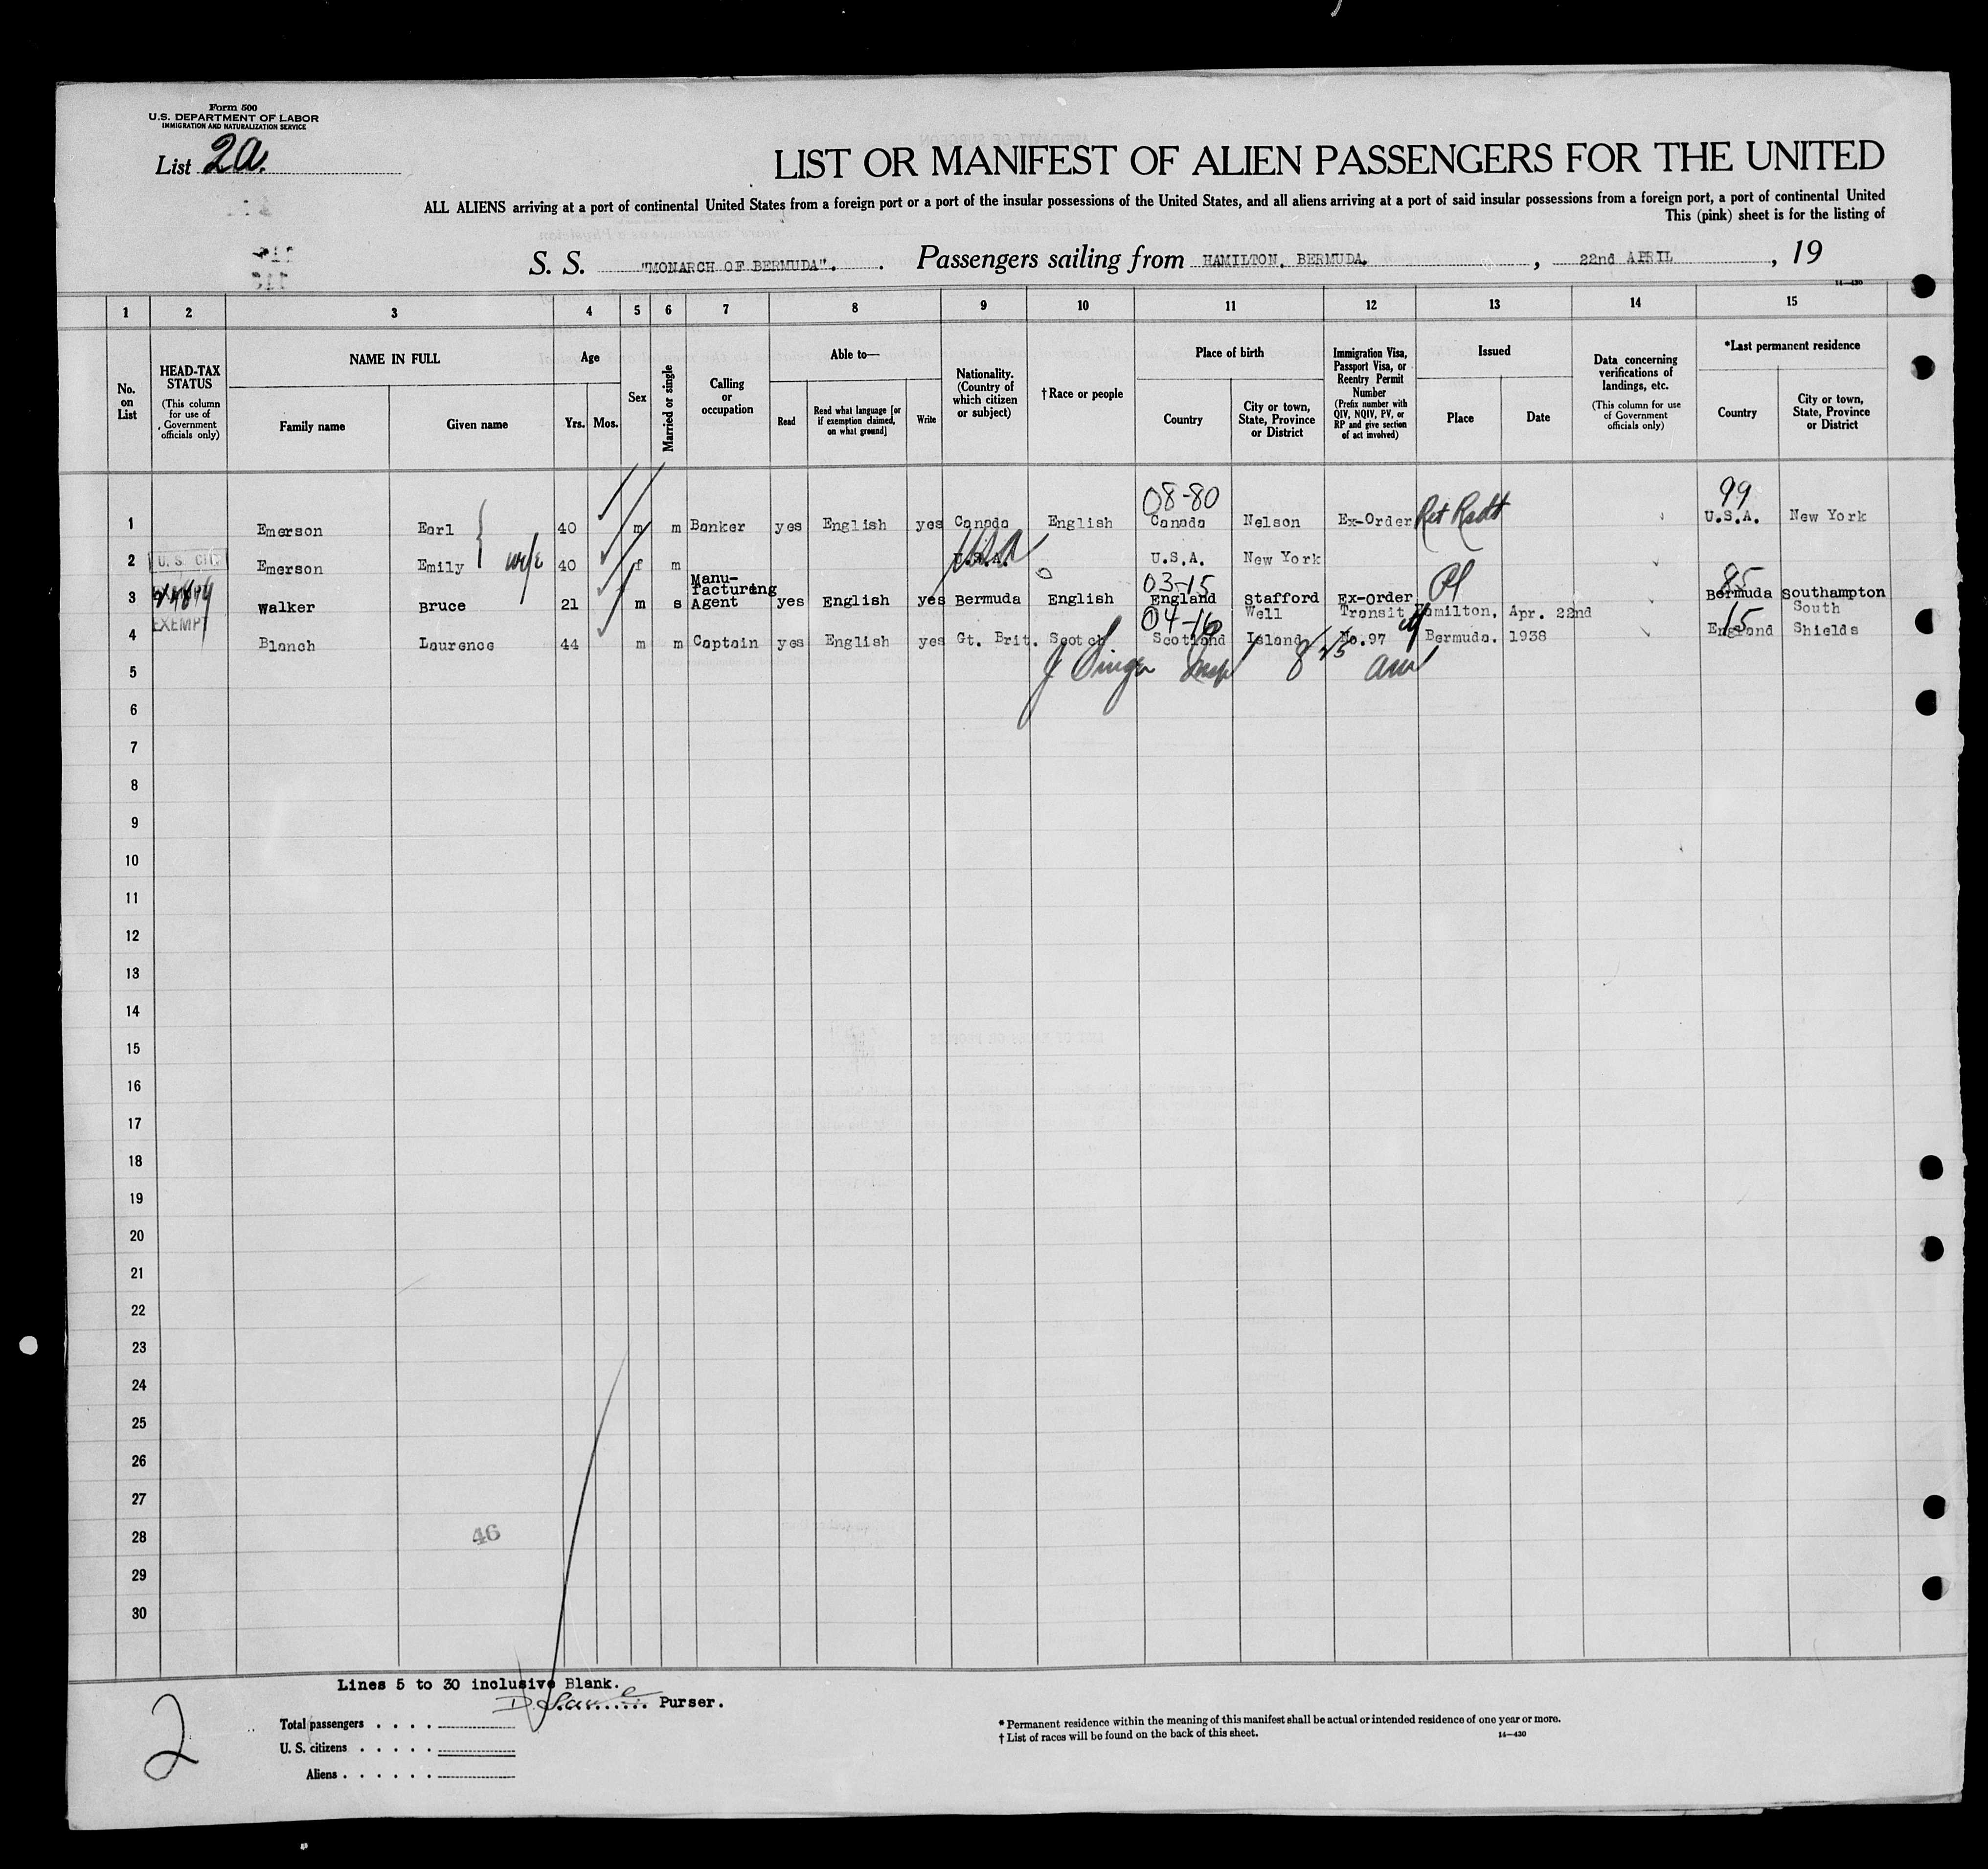 Form 500
U.S. DEPARTMENT OF LABOR
IMMIGRATION AND NATURALIZATION SERVICE
List 2a.
LIST OR MANIFEST OF ALIEN PASSENGERS FOR THE UNITED
ALL ALIENS arriving at a port of continental United States from a foreign port or a port of the insular possessions of the United States, and all aliens arriving at a port of said insular possessions from a foreign port, a port of continental United
This (pink) sheet is for the listing of
S. S. "MONARCH OF BERMUDA". Passengers sailing from HAMILTON. BERMUDA. , 22nd APRIL , 19
14—430
1 2 3 4 5 6 7 8 9 10 11 12 13 14 15
No. on List
HEAD-TAX STATUS
(This column for use of Government officials only)
NAME IN FULL
Family name
Given name
Age
Yrs. Mos.
Sex
Married or single
Calling or occupation
Able to—
Read
Read what language [or if exemption claimed, on what ground]
Write
Nationality. (Country of which citizen or subject)
†Race or people
Place of birth
Country
City or town, State, Province or District
Immigration Visa, Passport Visa, or Reentry Permit Number
(Prefix number with QIV, NQIV, PV, or RP and give section of act involved)
Issued
Place
Date
Data concerning verifications of landings, etc.
(This column for use of Government officials only)
*Last permanent residence
Country
City or town, State, Province or District
08-80 99
1 Emerson Earl 40 m m Banker yes English yes Canada English Canada Nelson Ex-Order Ret Rsdt U.S.A. New York
2 U. S. CIT. Emerson Emily wife 40 f m U.S.A. USA U.S.A. New York
03-15 85
3 Walker Bruce 21 m s Manu-facturing Agent yes English yes Bermuda English England Stafford Ex-Order Bermuda Southampton
EXEMPT 04-16 Well Transit Hamilton, Apr. 22nd 15 South
4 Blanch Laurence 44 m m Captain yes English yes Gt. Brit. Scotch Scotland Island No.97 Bermuda. 1938 England Shields
5
6
7
8
9
10
11
12
13
14
15
16
17
18
19
20
21
22
23
24
25
26
27
28
29
30
46
Lines 5 to 30 inclusive Blank.
Purser.
2
Total passengers . . . .
U. S. citizens . . . . .
Aliens . . . . . .
* Permanent residence within the meaning of this manifest shall be actual or intended residence of one year or more.
† List of races will be found on the back of this sheet.
14—430